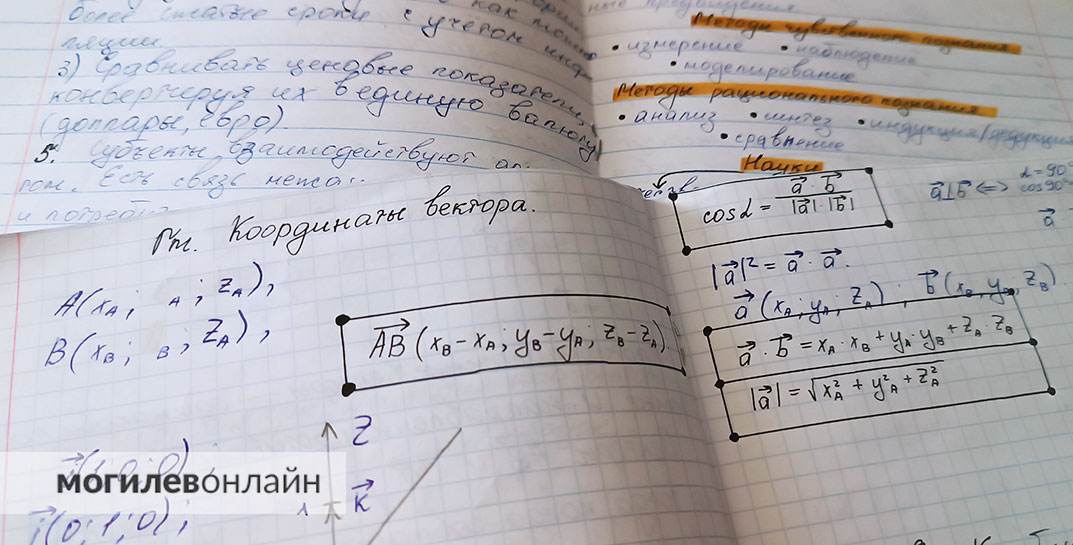 более сжатые сроки с учетом
ляции.
3) Сравнивать ценовые показатели,
конвертируя их в единую валюту
(доллары, евро).
5. Субъекты взаимодействуют
Есть связь
и
Методы чувственного познания
• измерение • наблюдение
• моделирование
Методы рационального познания
• анализ • синтез • индукция/дедукция
• сравнение
Науки
Гл. Координаты вектора.
A(x_A; _A; z_A),
B(x_B; _B; z_A),
AB⃗ (x_B − x_A; y_B − y_A; z_B − z_A)
Z
k⃗
(0; 1; 0);
cos α = a⃗ · b⃗ / |a⃗| · |b⃗|
a⃗⊥b⃗ <=> α = 90°
cos 90°
a⃗
|a⃗|² = a⃗ · a⃗.
a⃗ (x_A; y_A; z_A); b⃗ (x_B, y_B, z_B).
a⃗ · b⃗ = x_A · x_B + y_A · y_B + z_A · z_B
|a⃗| = √x²_A + y²_A + z²_A
могилевонлайн